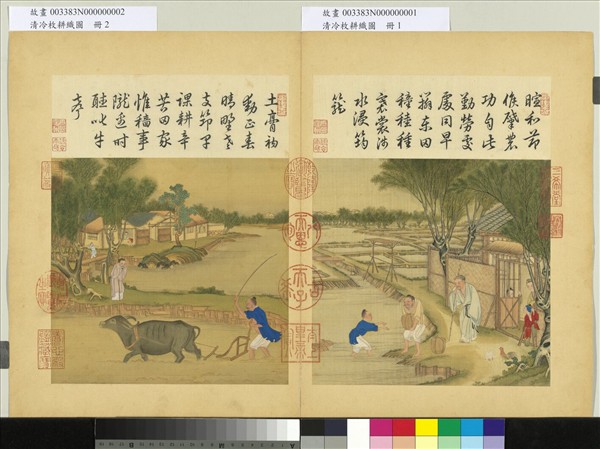 故畫 003383N000000002
清冷枚耕織圖 冊 2
故畫 003383N000000001
清冷枚耕織圖 冊 1
暄和節
候肇農
功自此
勤勞處
處同早
辨東田
穜稑種
褰裳涉
水浸筠
籠
土膏初
動正春
晴野老
支筇早
課耕辛
苦田家
惟穡事
隴邊時
聽叱牛
聲